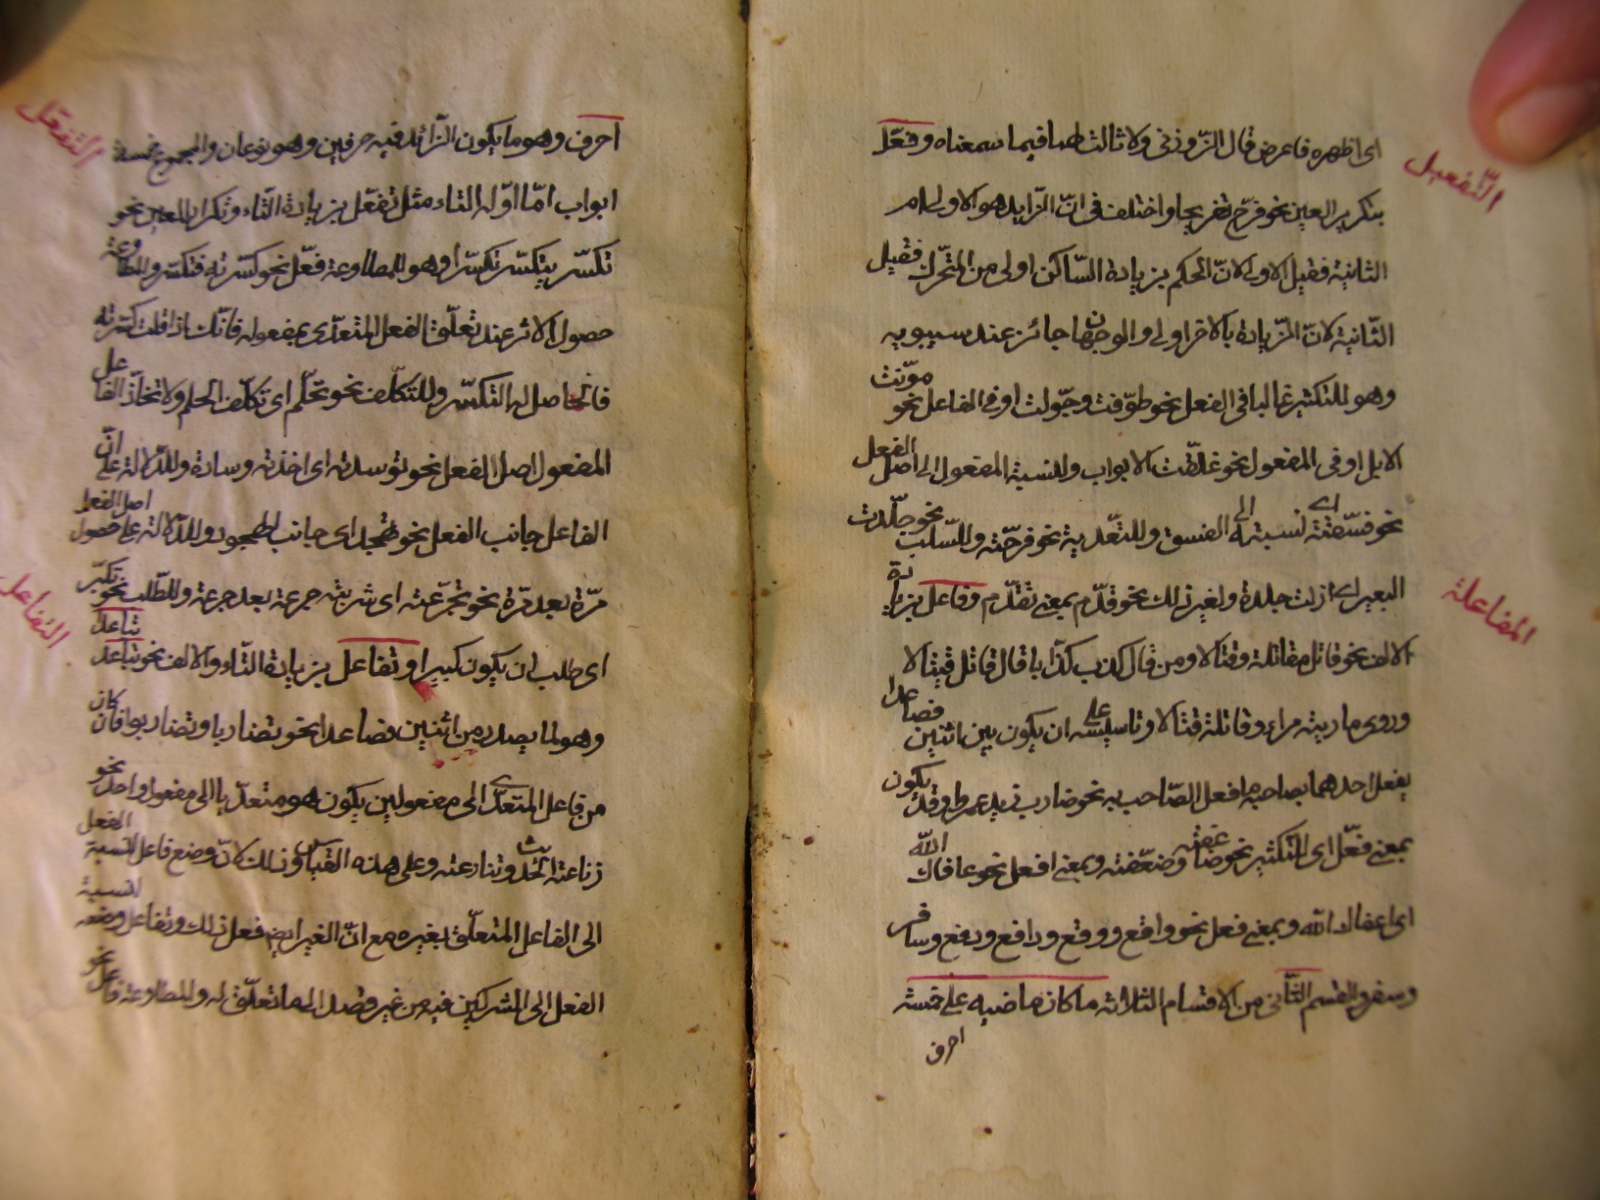 التّفعيل
اى اظهره فاعرض قال الزّوزنى ولا ثالث لهما فيما سمعناه وفعّل
بتكرير العين نحو فرّح تفريحا واختلف فى انّ الزّايد هو الاولى ام
الثانية فقيل الاولى لانّ الحكم بزيادة السّاكن اولى من المتحرك فقيل
الثّانية لانّ الزّيادة بالاخر اولى والوجهان جائز عند سيبويه
وهو للتكثير غالبا فى الفعل نحو طوّفت وجوّلت او فى الفاعل نحو موّتت
الابل او فى المفعول نحو غلّقت الابواب ولنسبة المفعول الى اصل الفعل
نحو فسّقته اى نسبته الى الفسق وللتعّدية نحو فرّحته وللسّلب نحو جلّدت
البعير اى ازلت جلده ولغير ذلك نحو قدّم بمعنى تقدّم وفاعل بزيادة
المفاعلة
الالف نحو قاتل مقاتلة وقتالا ومن قال كذب كذّابا قال قاتل قيتالا
وروى ماريته مراء وقاتلة قتالا وتاسيسه على ان يكون بين اثنين فصاعدا
يفعل احدهما بصاحبه ما فعل الصّاحب به نحو ضارب زيد عمروا وقد يكون
بمعنى فعّل اى للتكثير نحو ضاعفته وضعّفته وبمعنى افعل نحو عافاك اللّه
اى اعفاك اللّه وبمعنى فعل نحو واقع ووقع ودافع ودفع وسافر
وسفر والقسم الثّانى من الاقسام الثلاثه ما كان ماضيه على خمسة
احرف
التفعّل
احرف وهو ما يكون الزّائد فيه حرفين وهو نوعان والمجموع خمسة
ابواب امّا اوّله التاء مثل تفعّل بزيادة التّاء وتكرار العين نحو
تكسّر يتكسّر تكسّرا وهو لمطاوعة فعّل نحو كسّرته فتكسّر والمطاوعة
حصول الاثر عند تعلّق الفعل المتعدّى بمفعوله فانّك اذا قلت كسّرته
فالحاصل له التكسّر وللتكلّف نحو تحلّم اى تكلّف الحلم ولاتخاذ الفاعل
المفعول اصل الفعل نحو توسدته اى اخذته وسادة وللدّلالة على انّ
الفاعل جانب الفعل نحو تهجد اى جانب الهجود وللدّلالة على حصول اصل الفعل
مرّة بعد مرّة نحو تجرّعته اى شربته جرعة بعد جرعة وللطّلب نحو تكبّر
اى طلب ان يكون كبيرا وتفاعل بزيادة التّاء والالف نحو تباعد تباعد
التفاعل
وهو لما يصدر من اثنين فصاعدا نحو تضاربا وتضاربوا فان كان
من فاعل المتعدّى الى مفعولين يكون هو متعدّيا الى مفعول واحد نحو
نازعته الحديث وتنازعته وعلى هذه القياس وذلك لانّ وضع فاعل لنسبة الفعل
الى الفاعل المتعلّق بغيره مع انّ الغير ايضا فعل ذلك وتفاعل وضعه لنسبة
الفعل الى المشركين فيه من غير قصد الى ما تعلّق له ولمطاوعة فاعل نحو